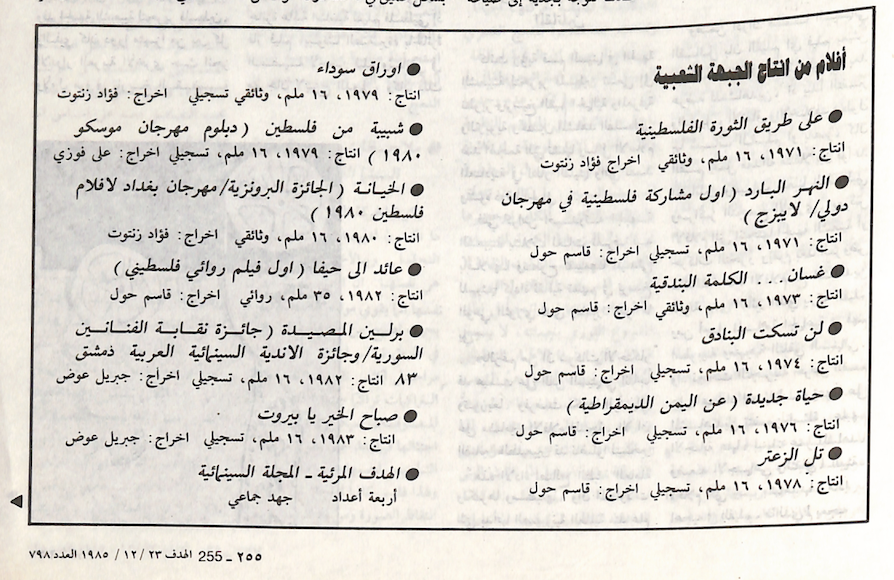 أفلام من انتاج الجبهة الشعبية
● على طريق الثورة الفلسطينية
انتاج: ١٩٧١، ١٦ ملم، وثائقي اخراج فؤاد زنتوت
● النهر البارد ( اول مشاركة فلسطينية في مهرجان
دولي/ لايبزج )
انتاج: ١٩٧١، ١٦ ملم، تسجيلي اخراج: قاسم حول
● غسان... الكلمة البندقية
انتاج: ١٩٧٣، ١٦ ملم، وثائقي اخراج: قاسم حول
● لن تسكت البنادق
انتاج: ١٩٧٤، ١٦ ملم، تسجيلي اخراج: قاسم حول
● حياة جديدة ( عن اليمن الديمقراطية )
انتاج: ١٩٧٦، ١٦ ملم، تسجيلي اخراج: قاسم حول
● تل الزعتر
انتاج: ١٩٧٨، ١٦ ملم، تسجيلي اخراج: قاسم حول
● اوراق سوداء
انتاج: ١٩٧٩، ١٦ ملم، وثائقي تسجيلي اخراج: فؤاد زنتوت
● شبيبة من فلسطين ( دبلوم مهرجان موسكو
١٩٨٠ ) انتاج: ١٩٧٩، ١٦ ملم، تسجيلي اخراج: علي فوزي
● الخيانة ( الجائزة البرونزية/مهرجان بغداد لافلام
فلسطين ١٩٨٠ )
انتاج: ١٩٨٠، ١٦ ملم، وثائقي اخراج: فؤاد زنتوت
● عائد الى حيفا ( اول فيلم روائي فلسطيني )
انتاج: ١٩٨٢، ٣٥ ملم، روائي اخراج: قاسم حول
● برلين المصيدة ( جائزة نقابة الفنانين
السورية/وجائزة الاندية السينمائية العربية دمشق
٨٣ انتاج: ١٩٨٢، ١٦ ملم، تسجيلي اخراج: جبريل عوض
● صباح الخير يا بيروت
انتاج: ١٩٨٣، ١٦ ملم، تسجيلي اخراج: جبريل عوض
● الهدف المرئية ـ المجلة السينمائية
أربعة أعداد جهد جماعي
٢٥٥ ـ 255 الهدف ٢٣ / ١٢ / ١٩٨٥ العدد ٧٩٨